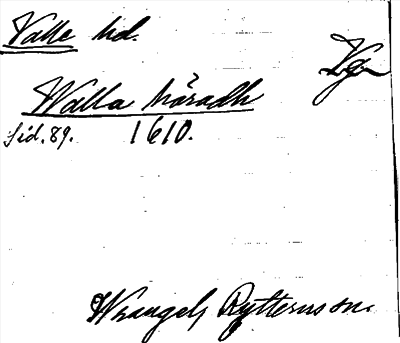 Valle hd.
Vg
Walla häradh
sid. 89. 1610.
Wrangels Rytterns m.